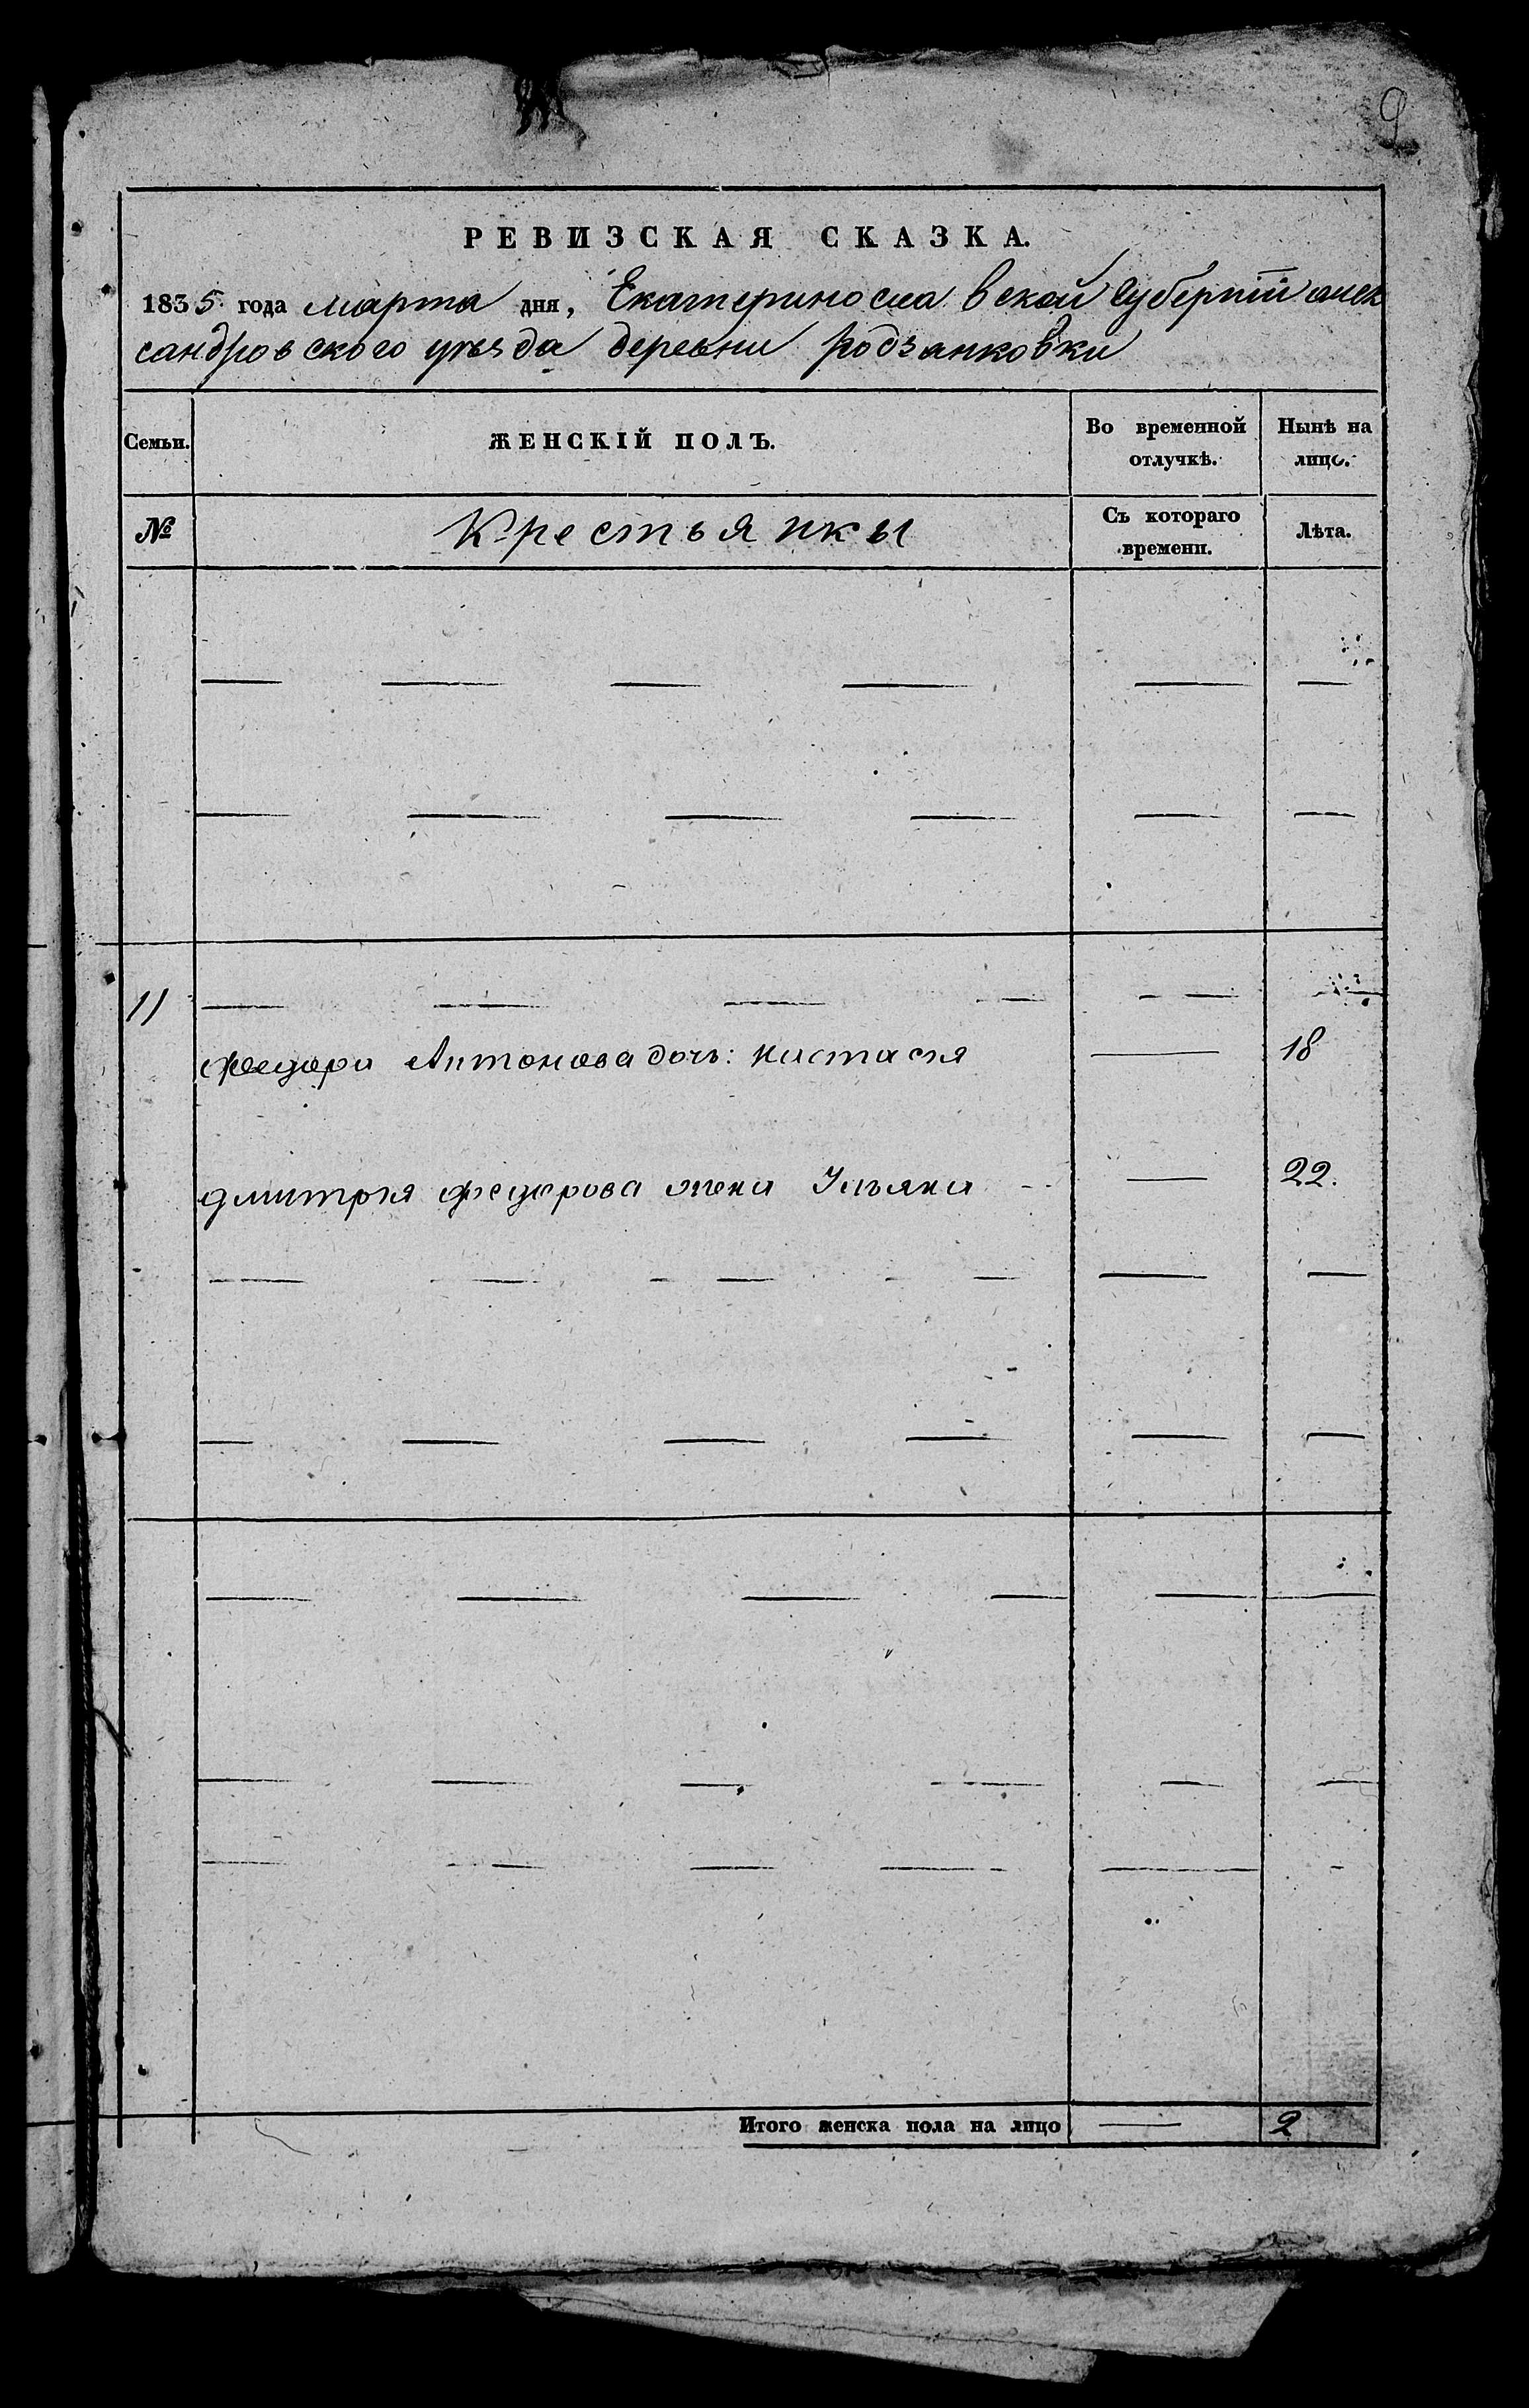 9
РЕВИЗСКАЯ СКАЗКА.
1835 года марта дня, Екатериносла вской губернии алек
сандровского уезда деревни Родзянковки
Семьи. ЖЕНСКІЙ ПОЛЪ. Во временной отлучкѣ. Нынѣ на лицо.
№ Крестьянкы Съ котораго времени. Лѣта.
11
федора Антонова дочь: Настасия 18
дмитрия федорова жена Ульяна 22.
Итого женска пола на лицо 2